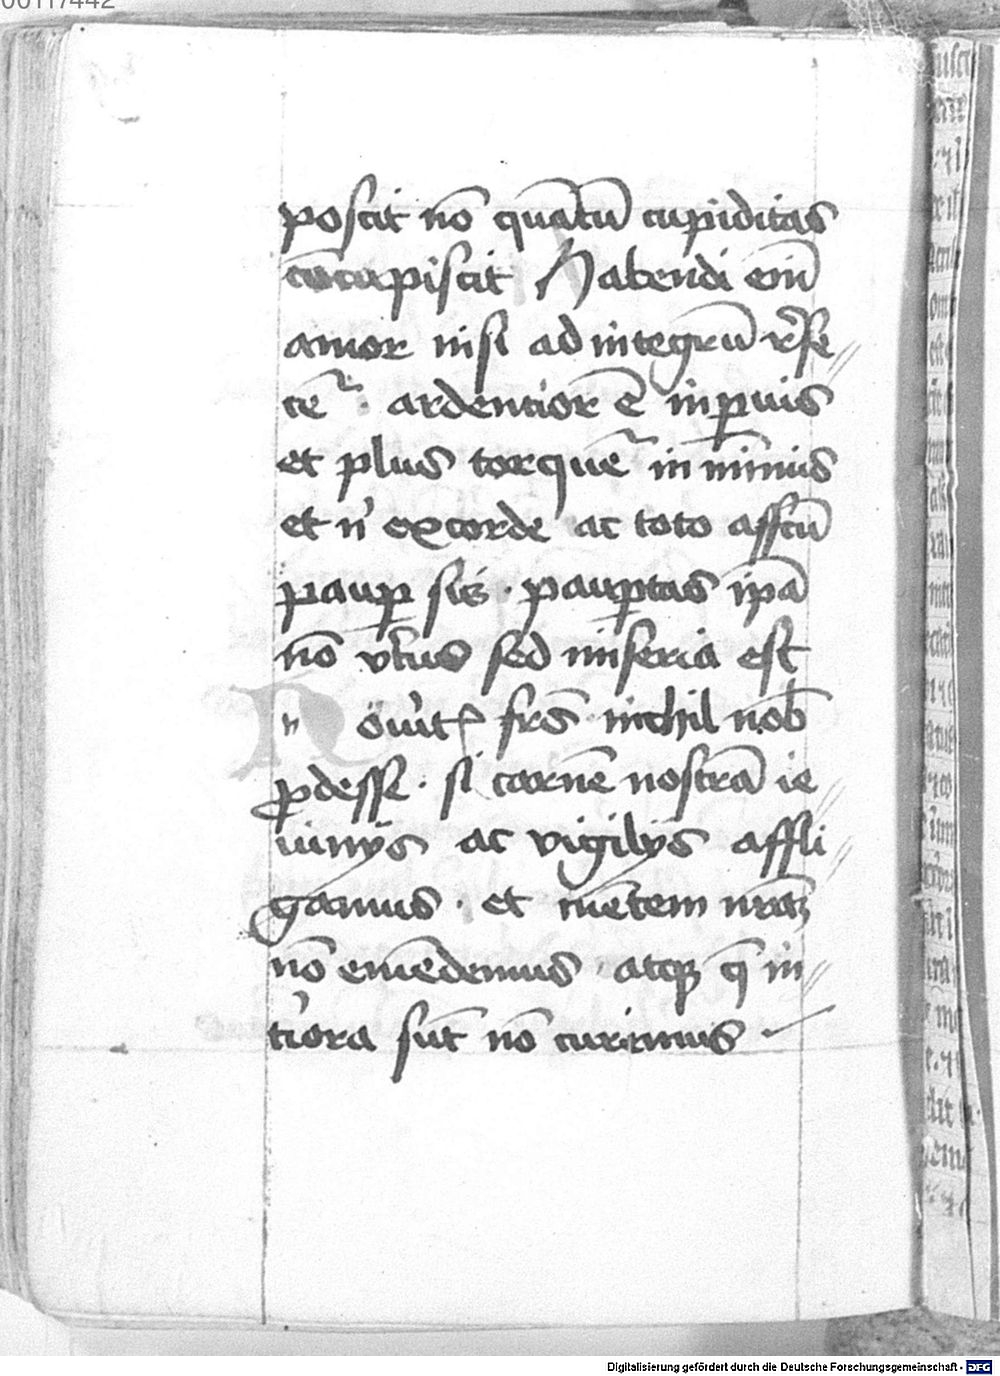 00117442
poscit nō quātū cupiditas
cōcupiscit Habendi em̄
amor nisi ad integrū r̄se
cēͬ · ardentior ē in ꝑuis
et plus torquēͬ in mīmis
et n̍ ex corde ac toto affcū
pauꝑ sis · pauꝑtas ip̄a
nō v̍tus sed miseria est
n Ouit̍ fr̄s nichil nob̄
ꝓdesse · si carnē nostrā ie
iunijs ac vigilijs affli
gamus · et mētem nrāꝫ
nō emēdemus · atqꝫ q̄ in
t̍iora sūt nō curemus ·
Digitalisierung gefördert durch die Deutsche Forschungsgemeinschaft - DFG